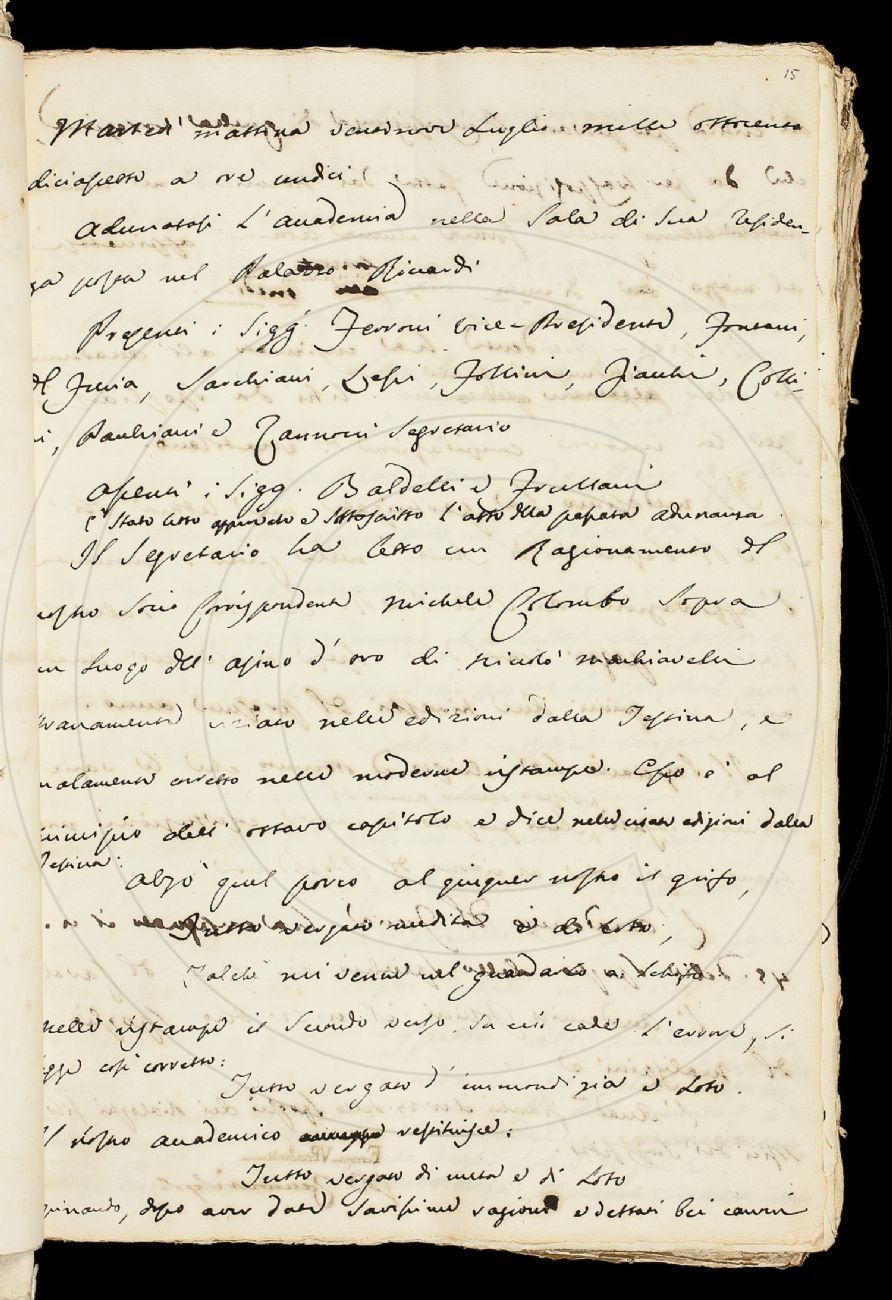 15
Martedì mattina ventinove Luglio mille ottocento
diciassette a ore undici
Adunatasi l'Accademia nella Sala di Sua residen-
za posta nel Palazzo Riccardi
Presenti i Sigg. Ferroni Vice-Presidente, Fontani,
del Furia, Sarchiani, Lessi, Follini, Fiacchi, Colli-
ni, Pauchiani e Zannoni Segretario
Assenti i Sigg. Baldelli e Frullani
È stato letto approvato e sottoscritto l'atto della passata adunanza.
Il Segretario ha letto un Ragionamento del
nostro Socio Corrispondente Michele Colombo sopra
un luogo dell'Asino d'oro di Niccolò Machiavelli
stranamente viziato nelle edizioni dalla Testina, e
malamente corretto nelle moderne ristampe. Esso è al
principio dell'ottavo capitolo e dice nelle citate edizioni dalla
Testina:
Alzò quel porco al giugner nostro il grifo,
Tutto vergato e di loto,
Talchè mi venne nel guardarlo a schifo:
nelle ristampe il secondo verso, su cui cade l'errore, si
legge così corretto:
Tutto vergato d'immondizia e loto.
Il nostro accademico restituisce:
Tutto vergato di meta e di loto
opinando, dopo aver date savissime ragioni e dettati bei canoni